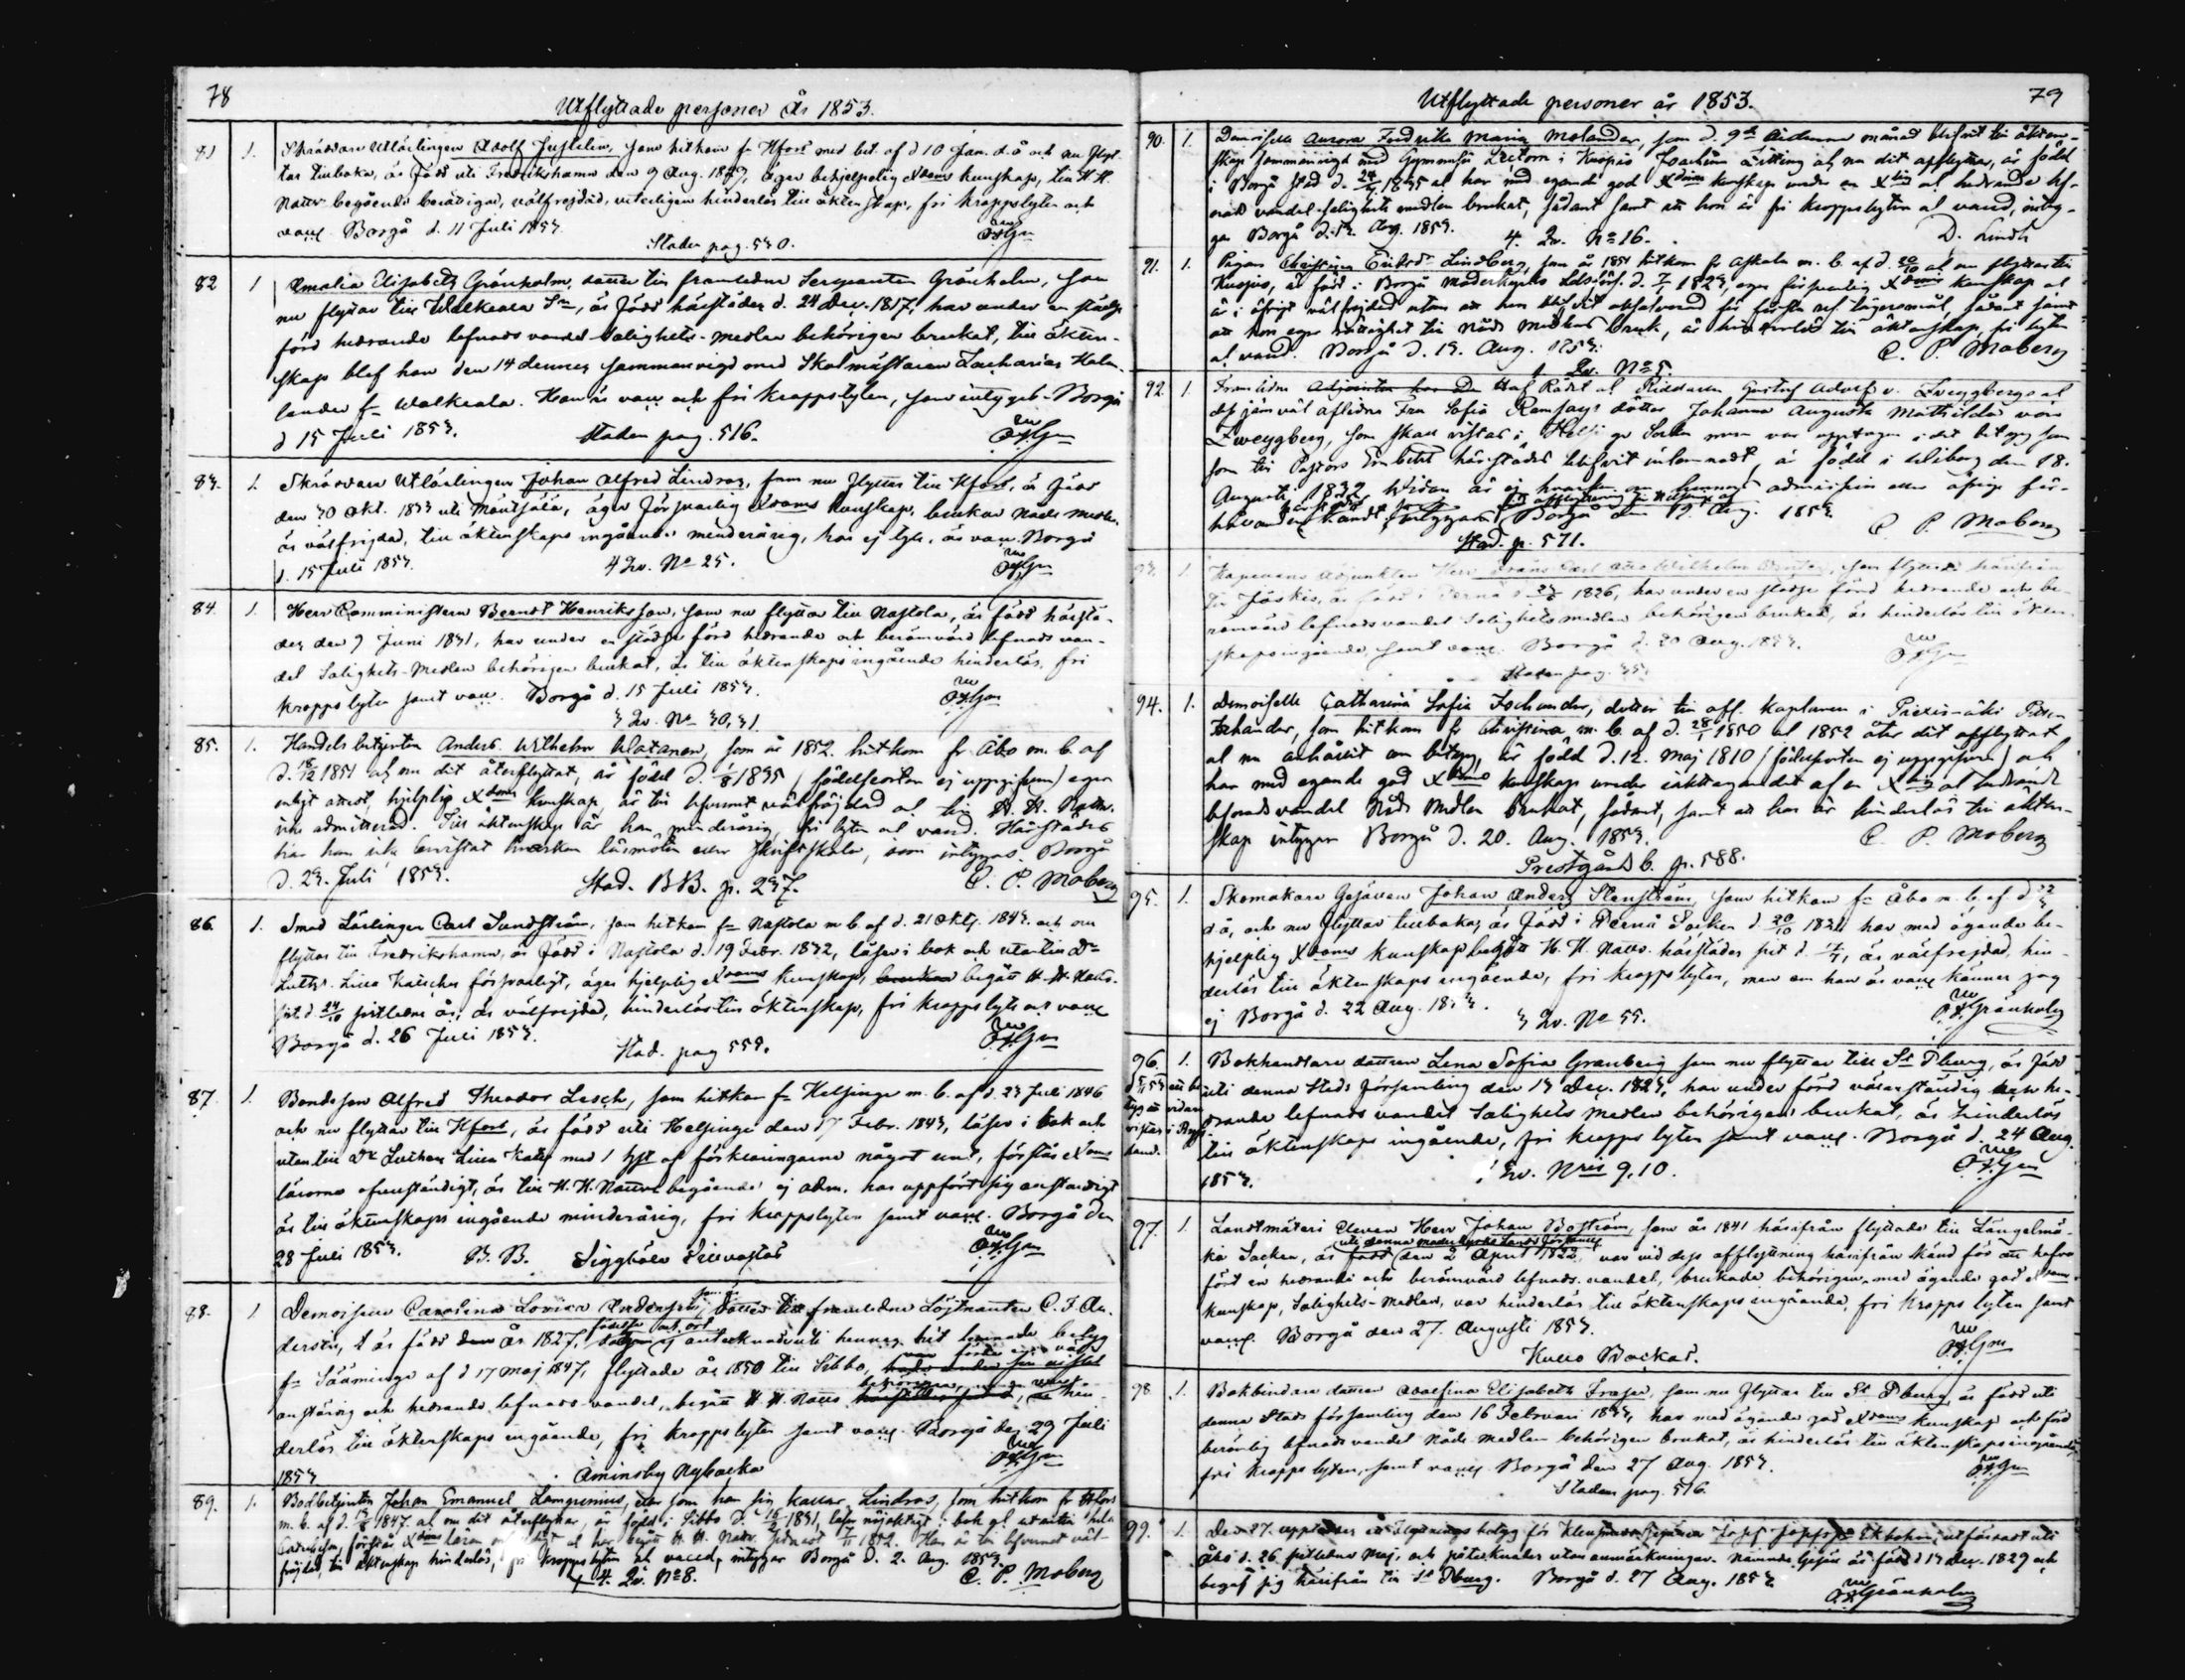 78
Utflyttade personer År 1853.
81 1. Skräddare Utlärlingen Adolf Juselius, som hitkom fr. Hfors med bet. af d 10 Jan. d.å och nu flyt-
tar tillbaka, är född uti Fredrikshamn den 9 Aug. äger behjelpelig Xdoms kunskap, till H.H.
Nattv. begående berättigad, välfrejdad, veterligen hinderlös till äktenskap, fri kroppslyten och
vacc. Borgå d. 11 Juli 1853.
Staden pag. 530.
82 1 Amalia Elisabeth Grönholm, dotter till framledne Sergeanten Grönholm, som
nu flyttar till Walkeala Sn, är född härstädes d. 24 Dec. 1817, har under en städse
förd hedrande lefnadsvandel Salighets-medlen behörigen brukat, till äkten-
skap blef hon den 14 dennes sammanvigd med Skolmästaren Zacharias Hole-
lander fr. Walkeala. Hon är vacc. och fri kroppslyten, som intygas. Borgå
d 15 Juli 1853. Staden pag. 516.
83. 1. Skräddare Utlärlingen Johan Alfred Lindros, som nu flyttar till Hfors, är född
den 30 Okt. 1833 uti Mäntsälä, äger försvarlig Xdoms kunskap, brukar Nådemedlen,
är välfrejdad, till äktenskaps ingående minderårig, har ej lyte, är vacc. Borgå
d. 15 Juli 1853. 4 Qv. No 25.
84. 1. Herr Comministern Berndt Henriksson, som nu flyttar till Nastola, är född härstä-
des den 9 Juni 1831, har under en städse förd hedrande och berömvärd lefnads van-
del Salighets-Medlen behörigen brukat, är till äktenskaps ingående hinderlös, fri
kroppslyten samt vacc. Borgå d. 15 Juli 1853.
3 Qv. No 30, 31.
85. 1. Handels betjenten Anders Wilhelm Watanen, som år 1852 hitkom fr Åbo m. b. af
d. 18/12 1851 och nu dit återflyttat, är född d. 1/8 1835 (födelseorten ej uppgifven) eger
enligt attest, hjelplig Xdoms kunskap, är till lefvernet välfrejdad och till H. H. Nattv.
icke admitterad. Till äktenskap är han minderårig, fri lyten och vacc. Härstädes
har han icke bevistat hvarken läsmöten eller skriftskola, som intygas. Borgå
d. 23. Juli 1853. Stad. B.B. p. 237. C. P. Moberg
86. 1. Smed Lärlingen Carl Sundström, som hitkom fr Nastola m b. af d. 21 Oktb. 1843. och nu
flyttar till Fredrikshamn, är född i Nastola d. 19 Febr. 1832, läser i bok och utantill Dr
Luthr. Lilla Katekes försvarligt, äger hjelplig Xdoms kunskap, begått H. H. Nattv.
sist d. 24/10 sistledne år, är välfrejdad, hinderlös till äktenskap, fri kroppslyte och vacc.
Borgå d. 26 Juli 1853. Stad. pag 559.
87. 1. Bondeson Alfred Theodor Lesch, som hitkom fr Helsinge m. b. af d. 23 Juli 1846
och nu flyttar till Hfors, är född uti Helsinge den 17 Febr. 1843, läser i bok och
utantill Dr Luthers Lilla Katek med 1 hst af förklaringarne något sent, förstår Xdoms
lärorna ofullständigt, är till H. H. Nattvd begående ej adm. har uppfört sig anständigt
är till äktenskaps ingående minderårig, fri kroppslyten samt vacc. Borgå den
28 Juli 1853. B. B. Siggböle
88. 1 Demoiselle Carolina Lovisa dotter till framledne Löjtnanten C. J. An-
derstén, är född år 1827, antecknad uti hennes hit lemnade betyg
fr Sääminge af d 17 Maj 1847, flyttade år 1850 till Sibbo,
anständig och hedrande lefnads-vandel, begått H. H. Nattv. hin-
derlös till äktenskaps ingående, fri kroppslyten samt vacc. Borgå den 29 Juli
1853 Aminsby Nybacka
89. 1. Bodbetjenten Johan Emanuel eller som han sig kallar Lindros, som hitkom fr Hfors
m. b. af d. 1847 och nu dit återflyttar, är född i Sibbo d. 16/2 1831, läser nöjaktigt i bok och utantill hela
Catechesen, förstår Xdoms läran och har begått H. H. Nattv. 1852. Han är till lefvernet väl-
frejdad, till äktenskap hinderlös, fri kroppslyten och vacc, intygar Borgå d. 2. Aug. 1853.
4. Qv. No 8. C. P. Moberg
Utflyttade personer år 1853. 79
90. 1. Demoiselle Aurora Fredrika Maria Molander, som d. 9de månad blifvit till äkten-
skap sammanvigd med Gymnasii Lectorn i Kuopio Joachim Zitting och nu dit afflyttar, är född
i Borgå stad d. 24/4 1835 och har med egande god Xdoms kunskap under en Xlig och hedrande lef-
nads vandel salighets medlen brukat, sådant samt att hon är fri kroppslyten och vacc, inty-
gar Borgå d. 12. Aug. 1853. 4. Qv. No 16. D. Lindh
91. 1. Pigan Christina Eriksdr Lindberg, som år 1851 hitkom fr Askola m. b. af d. 20/10 och nu flyttar till
Kuopio, är född i Borgå Moderkyrko d. 1823, eger försvarlig Xdoms kunskap och
är i öfrigt välfrejdad utom att hon blifvit absolverad för första res. lägersmål, sådant samt
att hon eger rättighet till Nåds Medlens bruk, är hinderlös till äktenskap, fri lyten
och vacc. Borgå d. 13. Aug. 1853. C. P. Moberg
Qv. No 5.
92. 1. Framlidne Hof Rådet och Riddaren Gustaf Adolf v. Zweygbergs och
dess jämväl aflidna Fru Sofia Ramsays dotter Johanna Augusta Mathilda von
Zweygberg, som skall vistas i Helsinge Socken var upptagen i det betyg som
som till Pastors Embetet härstädes blifvit inlemnadt, är född i Wiborg den 18.
Augusti 1839. Widare är ej hvarken om hennes admission eller öfriga för-
hållanden kändt, Borgå den 19. Aug. 1853. C. P. Moberg
Stad. p. 571.
93. 1. Kapellans Adjunkten Herr Frans Carl Otto Wilhelm som flyttade härifrån
till Jäskis, är född i Pernå d 1826, har under en städse förd hedrande och be-
römvärd lefnadsvandel Salighetsmedlen behörigen brukat, är hinderlös till äkten-
skapsingående, samt vacc. Borgå d. 20 Aug. 1853.
Staden pag.
94. 1. Demoiselle Catharina Sofia Zochander, dotter till afl. Kaplanen i Piexämäki
Zochander, som hitkom fr Christina m. b. af d. 28/1 1850 och 1852 åter dit afflyttat
och nu anhållit om betyg, är född d. 12. Maj 1810 (födelseorten ej uppgifven) och
har med egande god Xdoms kunskap under iakttagandet af en Xlig och hedrande
lefnadsvandel Nåds Medlen brukat, sådant, samt att hon är hinderlös till äkten-
skap intygar Borgå d. 20. Aug. 1853. C. P. Moberg
Prestgårds b. p. 588.
95. 1. Skomakare Gesällen Johan Anders Stenström, som hitkom fr Åbo m. b. af d
d å, och nu flyttar tillbaka, är född i Pernå Socken d 20/10 1821 har med ägande be-
hjelplig Xdoms kunskap begått H. H. Nattv. härstädes sist d. är välfrejdad, hin-
derlös till äktenskaps ingående, fri kroppslyten, men om han är vacc känner jag
ej Borgå d. 22 Aug. 1853. 3 Qv. No 55. Grönholm
96. 1. Bokhandlare dottern Lena Sofia Granberg som nu flyttar till St Pburg, är född
uti denna Stads församling den 13 Dec. 1823, har under förd välanständig och he-
drande lefnadsvandel Salighets medlen behörigen brukat, är hinderlös
till äktenskaps ingående, fri kropps lyten samt vacc. Borgå d. 24 Aug.
1853. 1 Qv. Nris 9, 10.
97. 1. Landtmäteri Eleven Herr Johan Boström, som år 1841 härifrån flyttade till Längelmä-
ki Socken, är född uti denna moderkyrko Lands församl. den 2 April 1822, var vid dess afflyttning härifrån känd för att hafva
fört en hedrande och berömvärd lefnads-vandel, brukade behörigen, med ägande god Xdoms
kunskap, Salighets-Medlen, var hinderlös till äktenskaps ingående, fri kropps lyten samt
vacc. Borgå den 27. Augusti 1853.
Kullo Backas.
98 1. Bokbindare dottern Adolfina Elisabeth Fraser, som nu flyttar till St Pburg är född uti
denna Stads församling den 16 Februari 1833, har med ägande god Xdoms kunskap och förd
berömlig lefnadsvandel Nåde medlen behörigen brukat, är hinderlös till äktenskapsingående
fri kroppslyten, samt vacc. Borgå den 27 Aug. 1853.
Staden pag. 516.
99. 1. Den 27. uppvistes betyg för Gesällen Josef Josefsson Ekholm, utfärdadt uti
Åbo d. 26 sistledne Maj, och påtecknades utan anmärkningar. Nämnde Gesäll är född d 13 Dec. 1829 och
begaf sig härifrån till St Pburg. Borgå d. 27 Aug. 1853. Grönholm